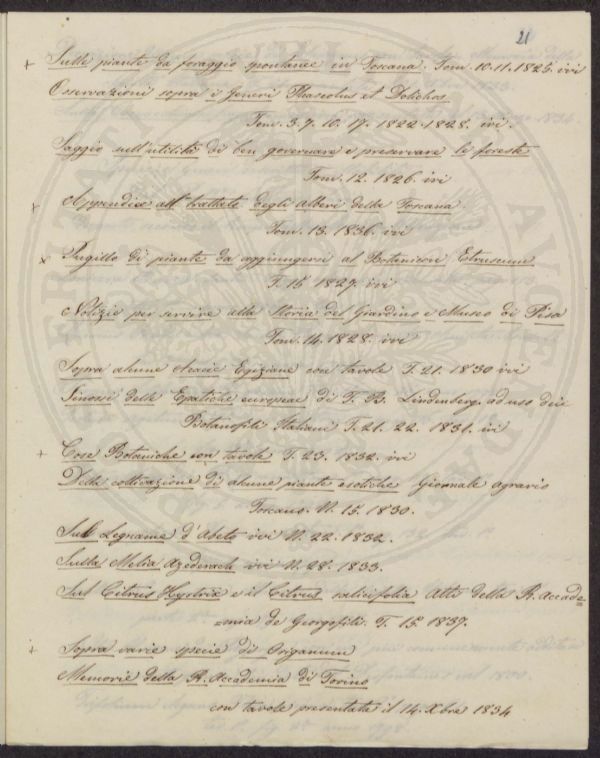 21
+ Sulle piante da foraggio spontanee in Toscana. Tom. 10. 11. 1825. ivi
Osservazioni sopra i generi Phaseolus et Dolichos.
Tom. 3. 7. 10. 17. 1822. 1828. ivi.
Saggio sull'utilità di ben governare e preservare le foreste
Tom. 12. 1826. ivi
+ Appendice all trattato degli alberi della Toscana.
Tom. 13. 1836. ivi
x Pugillo di piante da aggiungersi al Botanicon Etruscum
T. 15 1827. ivi
Notizie per servire alla Storia del Giardino e Museo di Pisa
Tom. 14. 1828. ivi
Sopra alcune Acacie Egiziane con tavole T. 21. 1830 ivi
Sinossi delle Epatiche europeae di T. B. Lindenberg. ad uso dei
Botanofili Italiani T. 21. 22. 1831. ivi
+ Cose Botaniche con tavole T. 23. 1832. ivi
Della coltivazione di alcune piante esotiche Giornale agrario
Toscano. N. 15. 1830.
Sul Legname d'Abeto ivi N. 22. 1832.
Sulla Melia Azederach ivi N. 28. 1833.
Sul Citrus Hystrix e il Citrus salicifolia Atti della R. Accade=
=mia de Georgofili. T. 15. 1837.
+ Sopra varie specie di Origanum
Memorie della R. Accademia di Torino
con tavole presentate il 14. Xbre 1834